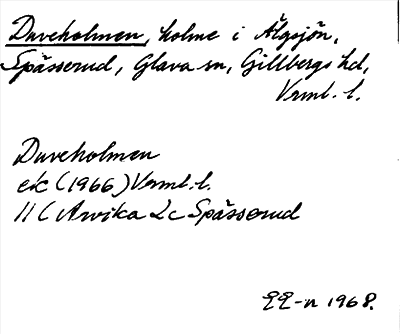 Duveholmen, holme i Älgsjön,
Spässerud, Glava sn, Gillbergs hd,
Vrml. l.
Duveholmen
ek (1966) Vrml. l.
11 C Arvika 2c Spässerud
1968.